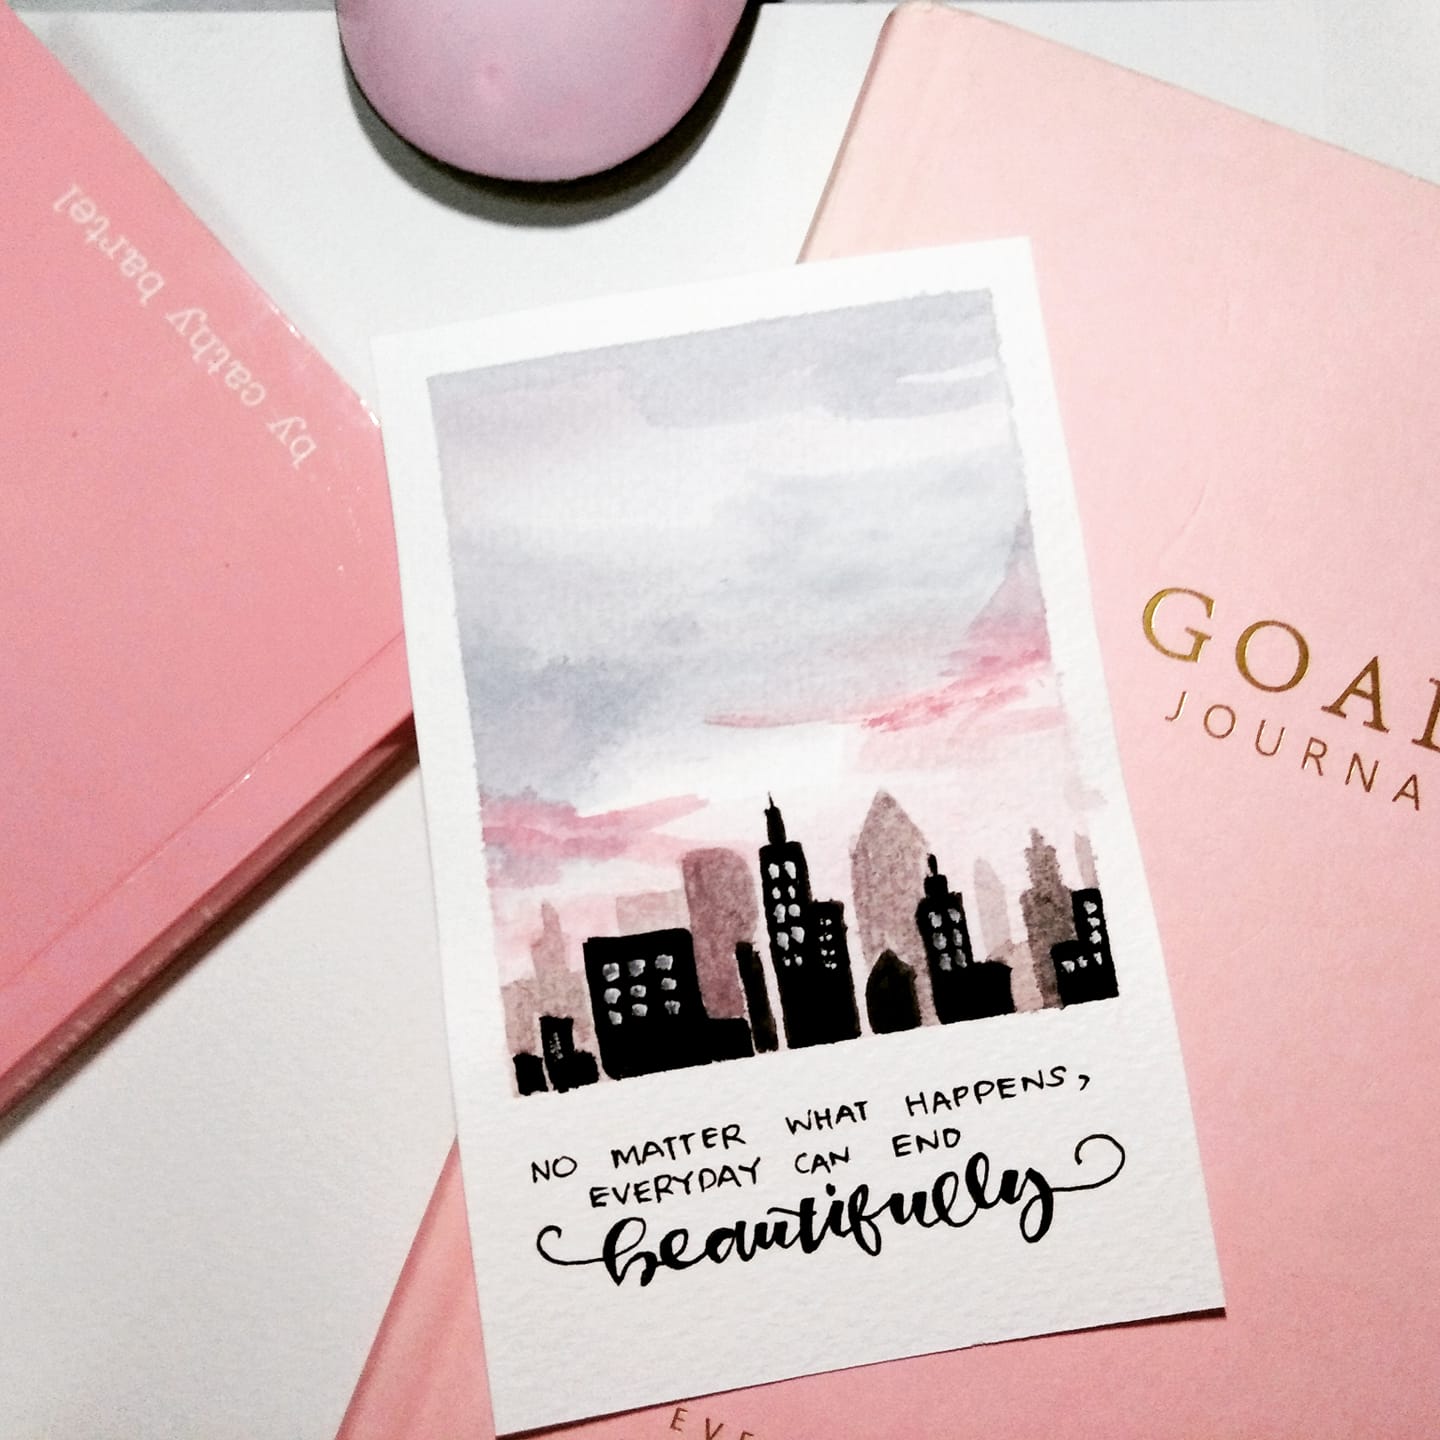 by cathy bartel
GOAL
JOURNA
NO MATTER WHAT HAPPENS,
EVERYDAY CAN END
beautifully
EVE